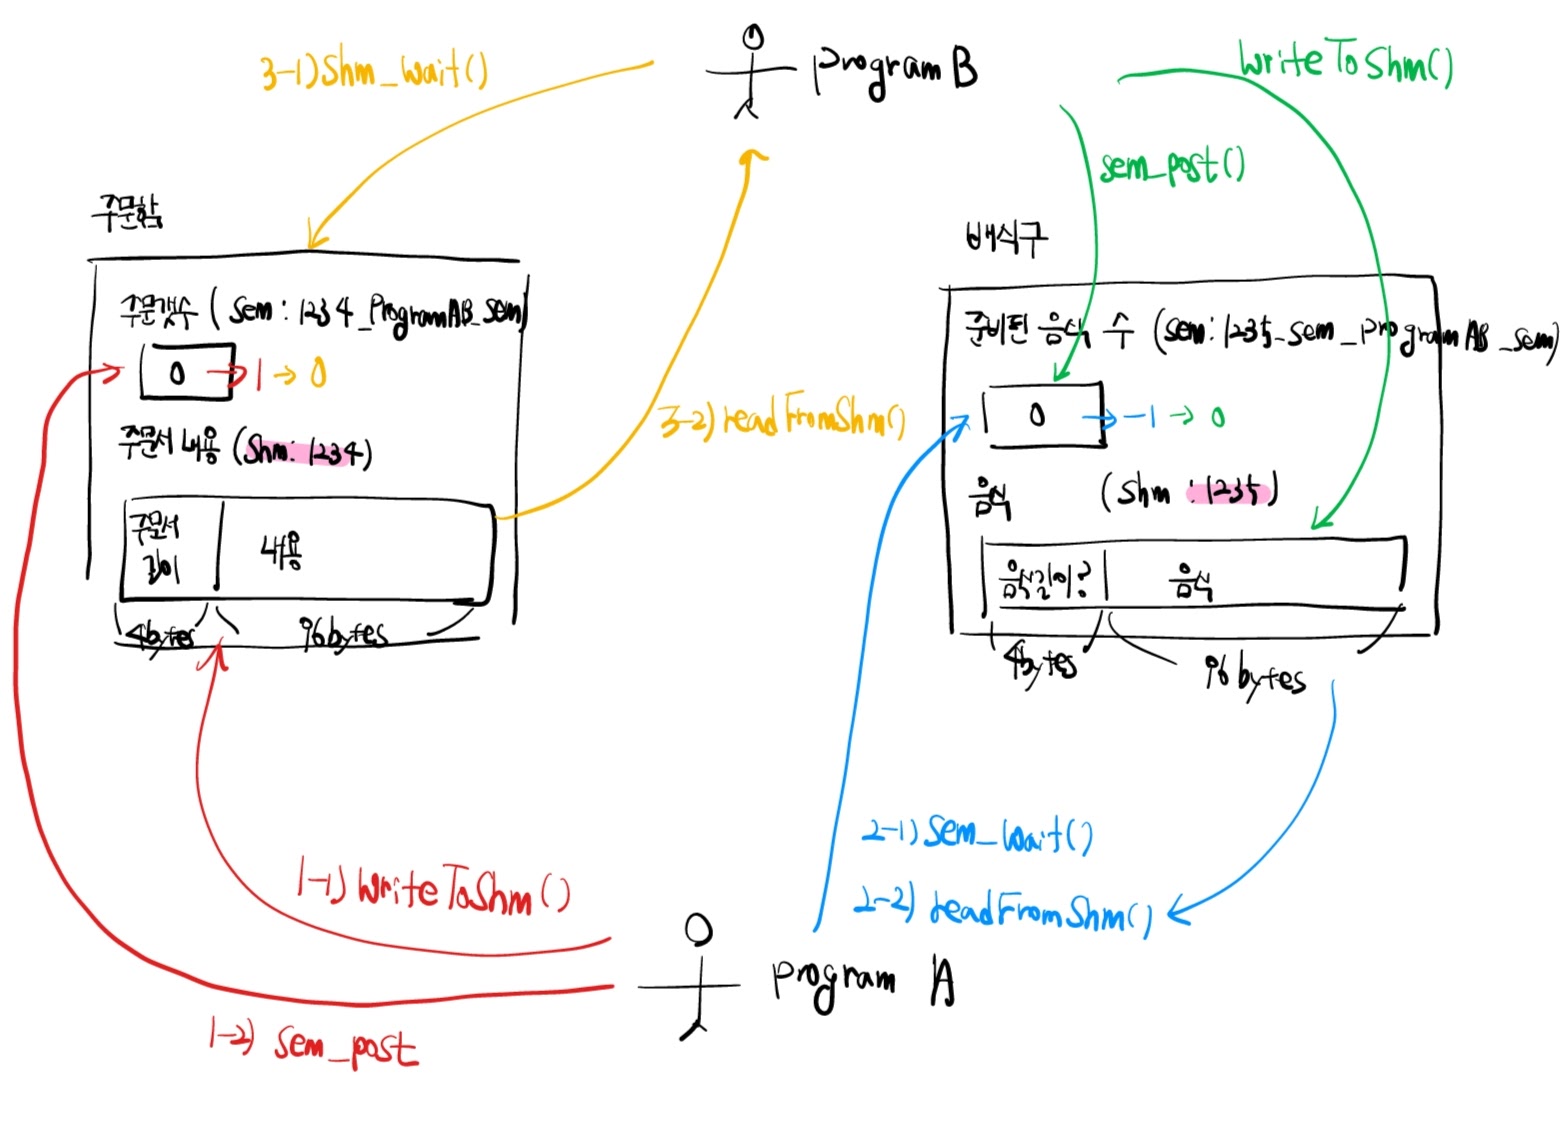 3-1) Shm_wait()
program B
writeToShm()
sem_post()
주문함
배식구
주문갯수 (sem : 1234_ProgramAB_sem)
0 → 1 → 0
주문서 내용 (Shm: 1234)
주문서
길이
내용
4bytes
96bytes
3-2) readFromShm()
준비된 음식 수 (sem: 1235_sem_programAB_sem)
0 → -1 → 0
음식 (shm : 1235)
음식길이?
음식
4bytes
96bytes
2-1) sem_wait()
2-2) readFromShm()
1-1) writeToShm()
program A
1-2) sem_post